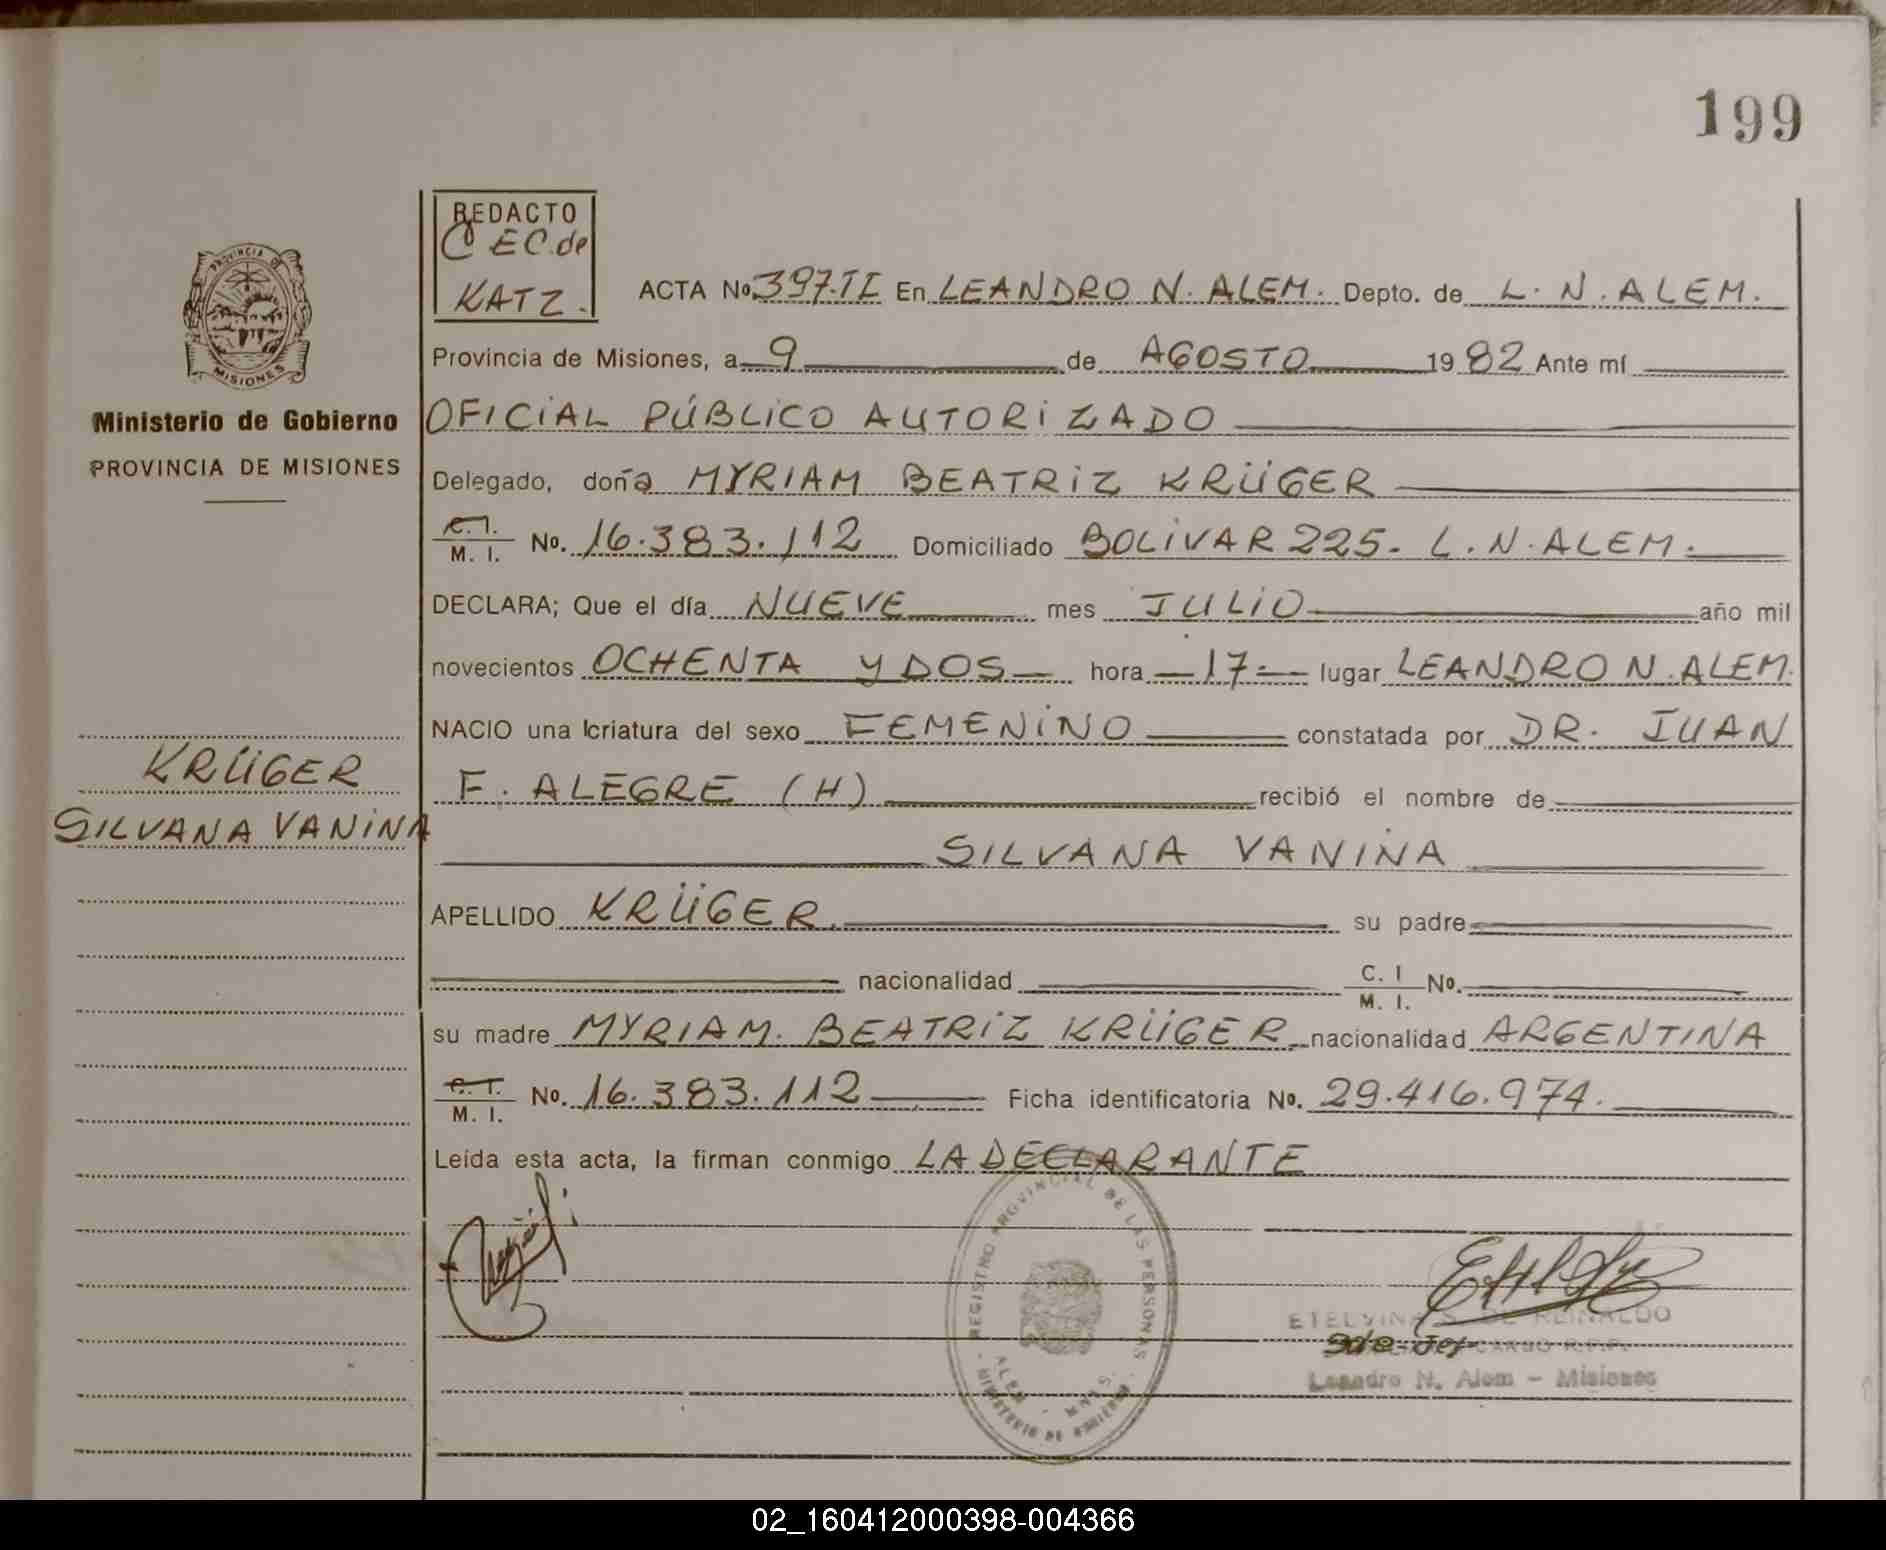 199
REDACTO
EC. de
KATZ.
ACTA No. 397.II En LEANDRO N. ALEM. Depto. de L. N. ALEM.
Provincia de Misiones, a 9 de AGOSTO 19 82 Ante mí
OFICIAL PÚBLICO AUTORIZADO
PROVINCIA DE
MISIONES
Ministerio de Gobierno
PROVINCIA DE MISIONES
Delegado, doña MYRIAM BEATRIZ KRÜGER
C. I.
M. I. No. 16.383.112 Domiciliado BOLIVAR 225. L. N. ALEM.
DECLARA; Que el día NUEVE mes JULIO año mil
novecientos OCHENTA Y DOS hora 17 lugar LEANDRO N. ALEM.
NACIO una criatura del sexo FEMENINO constatada por DR. JUAN
F. ALEGRE (H) recibió el nombre de
SILVANA VANINA
KRÜGER
SILVANA VANINA
APELLIDO KRÜGER. su padre
nacionalidad C. I
M. I. No.
su madre MYRIAM. BEATRIZ KRÜGER nacionalidad ARGENTINA
C. I.
M. I. No. 16.383.112 Ficha identificatoria No. 29.416.974.
Leída esta acta, la firman conmigo LA DECLARANTE
REGISTRO PROVINCIAL DE LAS PERSONAS
ALEM - MNES.
MINISTERIO DE GOBIERNO
ETELVINA DE REINALDO
CARGO R.P.P.
Leandro N. Alem - Misiones
02_160412000398-004366